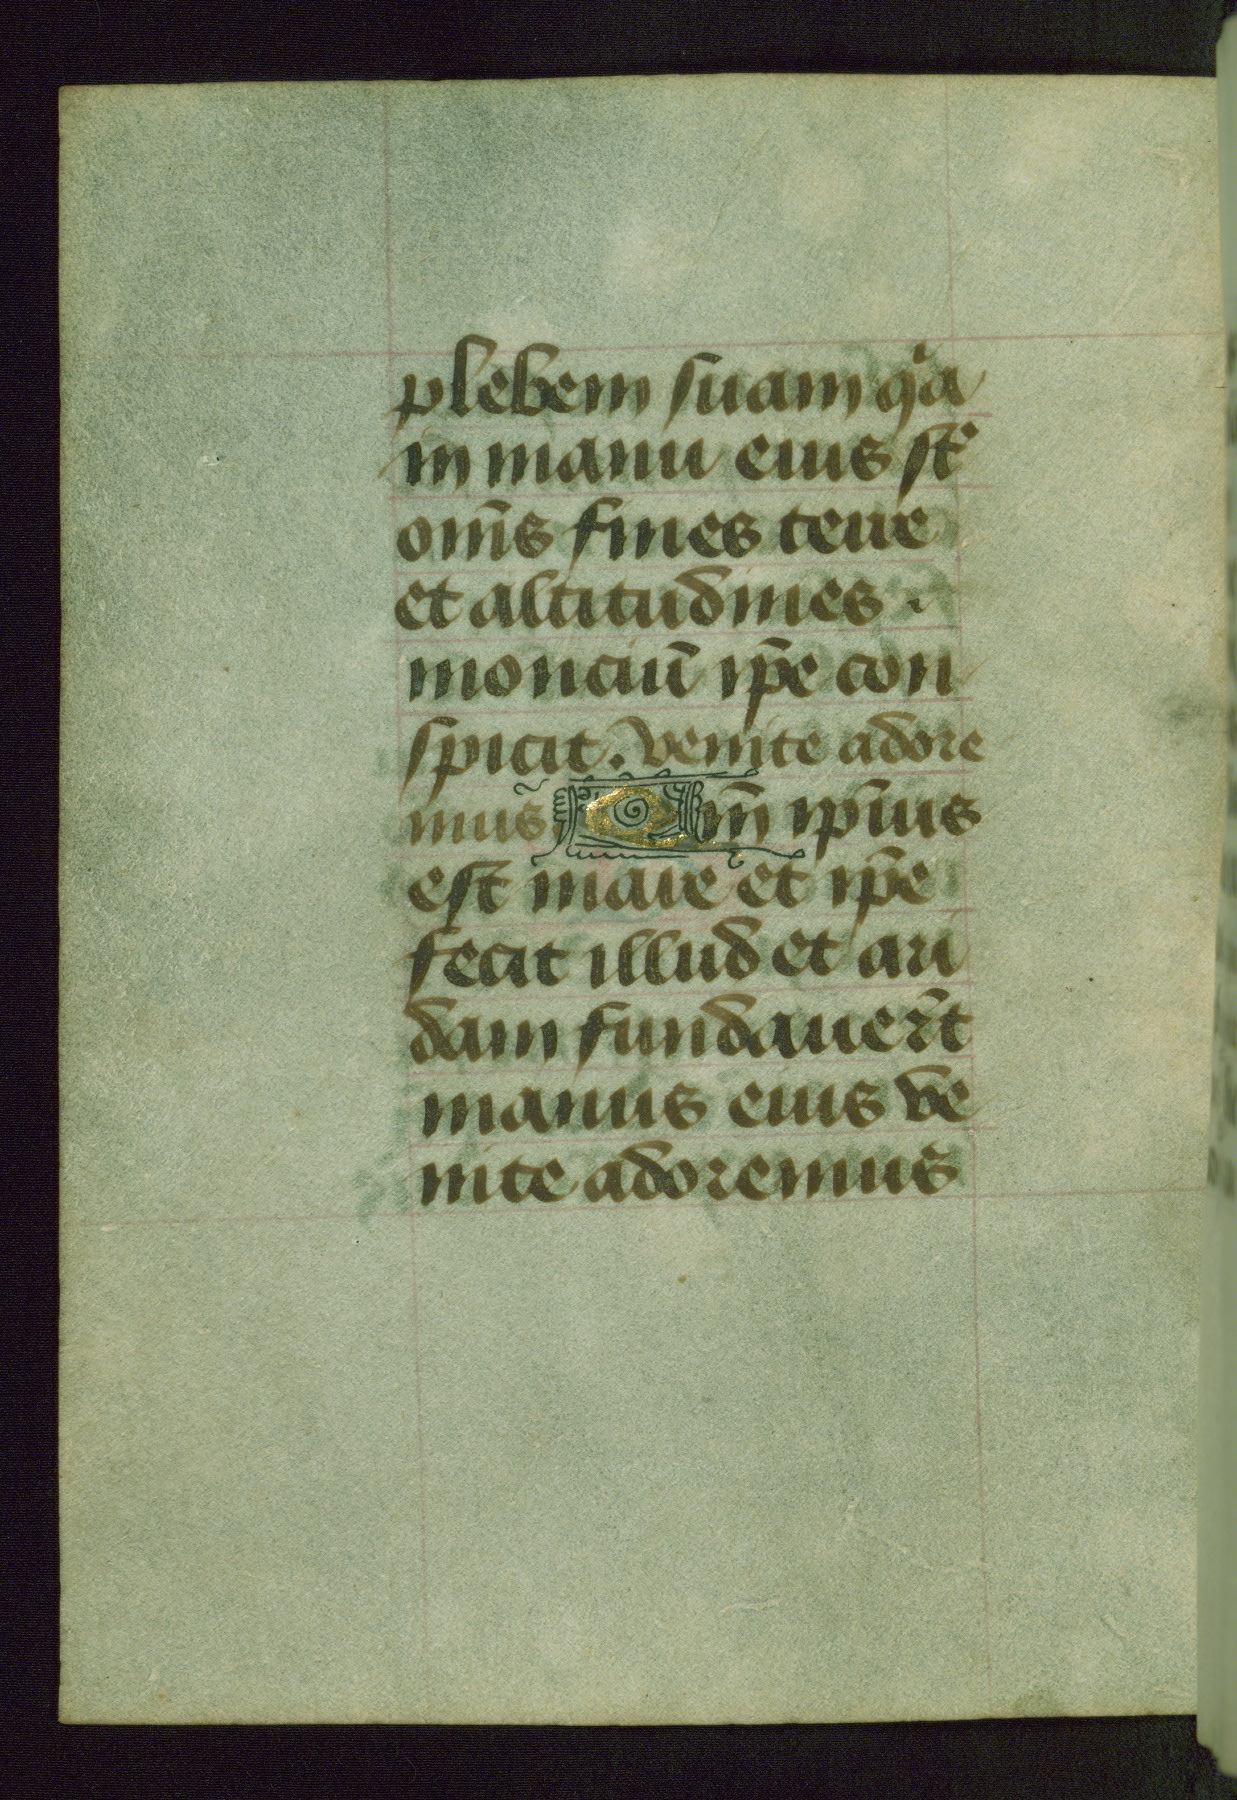 plebem suam qͥa
in manu eius st̄
om̄s fines terre
et altitudines .
monciū ip̄e con
spicit. venite adore
mus Qm̄ ip̄ius
est mare et ip̄e
fecit illud et ari
dam fundauer̄t
manus eius ve
nite adoremus